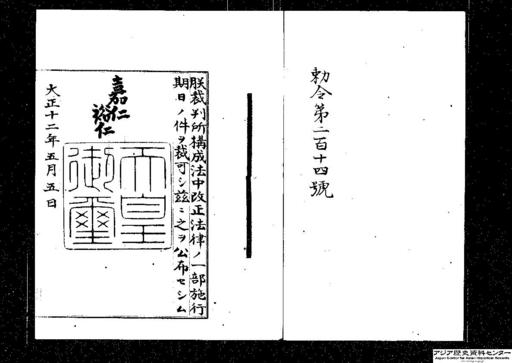 勅令第二百十四號
朕裁判所構成法中改正法律ノ一部施行
期日ノ件ヲ裁可シ茲ニ之ヲ公布セシム
嘉仁
裕仁
天皇
御璽
大正十二年五月五日
アジア歴史資料センター
Japan Center for Asian Historical Records